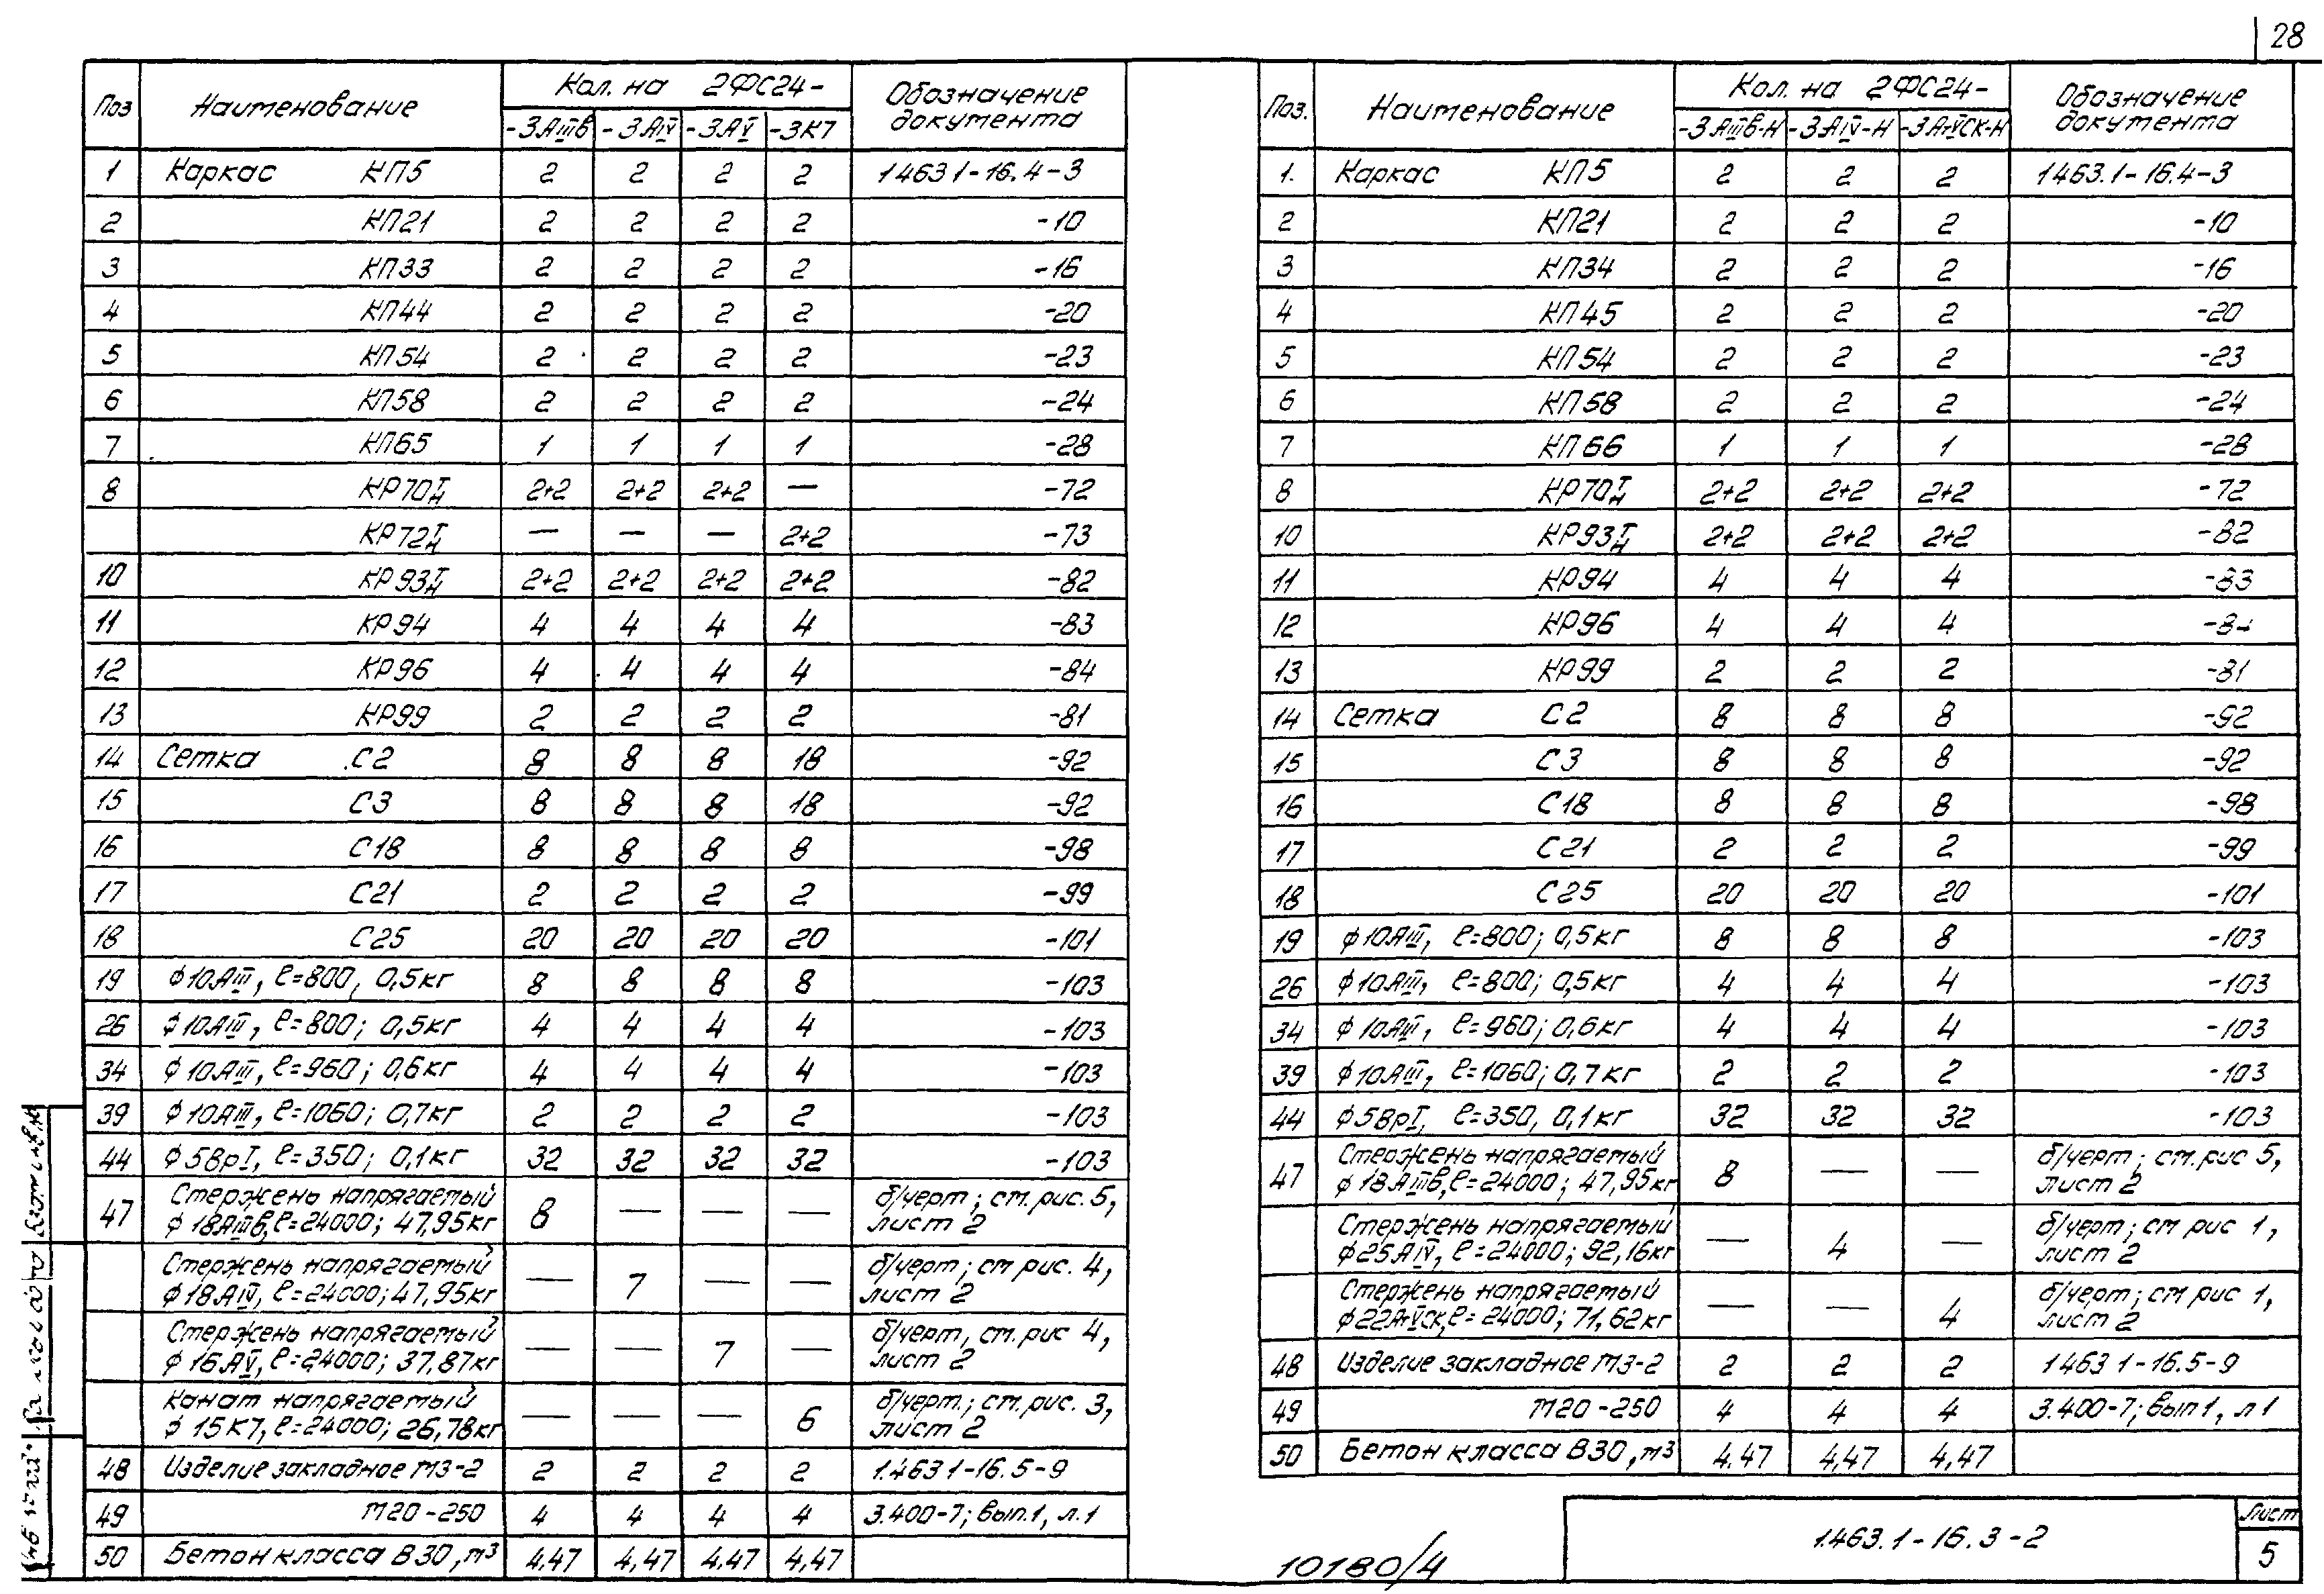 28
Поз Наименование Кол. на 2ФС24- Обозначение документа
-3АIIIв -3АIV -3АV -3К7
1 Каркас КП5 2 2 2 2 1463 1-16.4-3
2 КП21 2 2 2 2 -10
3 КП33 2 2 2 2 -16
4 КП44 2 2 2 2 -20
5 КП54 2 2 2 2 -23
6 КП58 2 2 2 2 -24
7 КП65 1 1 1 1 -28
8 КР70Т/Н 2+2 2+2 2+2 — -72
КР72Т/Н — — — 2+2 -73
10 КР93Т/Н 2+2 2+2 2+2 2+2 -82
11 КР94 4 4 4 4 -83
12 КР96 4 4 4 4 -84
13 КР99 2 2 2 2 -81
14 Сетка С2 8 8 8 18 -92
15 С3 8 8 8 18 -92
16 С18 8 8 8 8 -98
17 С21 2 2 2 2 -99
18 С25 20 20 20 20 -101
19 ф10АIII, ℓ=800, 0,5кг 8 8 8 8 -103
26 ф10АIII, ℓ=800; 0,5кг 4 4 4 4 -103
34 ф10АIII, ℓ=960; 0,6кг 4 4 4 4 -103
39 ф10АIII, ℓ=1060; 0,7кг 2 2 2 2 -103
44 ф5ВрI, ℓ=350; 0,1кг 32 32 32 32 -103
47 Стержень напрягаемый ф18АIIIв, ℓ=24000; 47,95кг 8 — — — б/черт; см. рис. 5, лист 2
Стержень напрягаемый ф18АIV, ℓ=24000; 47,95кг — 7 — — б/черт; см рис. 4, лист 2
Стержень напрягаемый ф16АV, ℓ=24000; 37,87кг — — 7 — б/черт, см. рис 4, лист 2
Канат напрягаемый ф15К7, ℓ=24000; 26,78кг — — — 6 б/черт.; см. рис. 3, лист 2
48 Изделие закладное М3-2 2 2 2 2 1.463 1-16.5-9
49 М20-250 4 4 4 4 3.400-7; вып.1, л.1
50 Бетон класса В30, м³ 4,47 4,47 4,47 4,47
Поз. Наименование Кол. на 2ФС24- Обозначение документа
-3АIIIв-Н -3АIV-Н -3АтVСК-Н
1. Каркас КП5 2 2 2 1463.1-16.4-3
2 КП21 2 2 2 -10
3 КП34 2 2 2 -16
4 КП45 2 2 2 -20
5 КП54 2 2 2 -23
6 КП58 2 2 2 -24
7 КП66 1 1 1 -28
8 КР70Т/Н 2+2 2+2 2+2 -72
10 КР93Т/Н 2+2 2+2 2+2 -82
11 КР94 4 4 4 -83
12 КР96 4 4 4 -84
13 КР99 2 2 2 -81
14 Сетка С2 8 8 8 -92
15 С3 8 8 8 -92
16 С18 8 8 8 -98
17 С21 2 2 2 -99
18 С25 20 20 20 -101
19 ф10АIII, ℓ=800; 0,5кг 8 8 8 -103
26 ф10АIII, ℓ=800; 0,5кг 4 4 4 -103
34 ф10АIII, ℓ=960; 0,6кг 4 4 4 -103
39 ф10АIII, ℓ=1060; 0,7кг 2 2 2 -103
44 ф5ВрI, ℓ=350, 0,1кг 32 32 32 -103
47 Стержень напрягаемый ф18АIIIв, ℓ=24000; 47,95кг 8 — — б/черт; см. рис 5, лист 2
Стержень напрягаемый ф25АIV, ℓ=24000; 92,16кг — 4 — б/черт; см рис 1, лист 2
Стержень напрягаемый ф22АтVСК, ℓ=24000; 71,62кг — — 4 б/черт; см рис 1, лист 2
48 Изделие закладное М3-2 2 2 2 1463 1-16.5-9
49 М20-250 4 4 4 3.400-7; вып 1, л 1
50 Бетон класса В30, м³ 4.47 4,47 4,47
10180/4
1.463.1-16.3-2
Лист
5